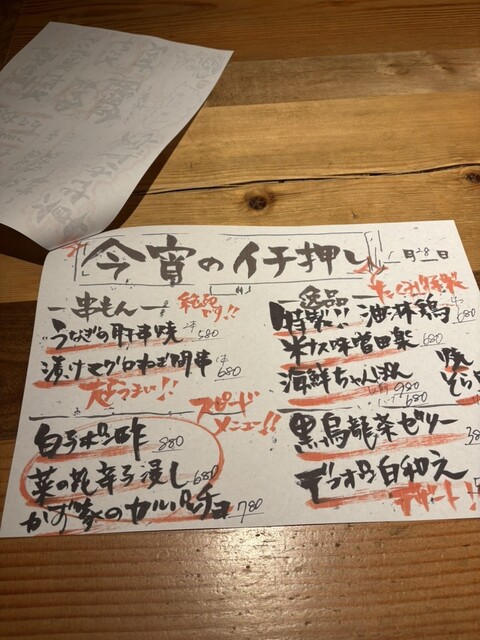 今宵のイチ押し
月28日
串もん
絶品です!!
うなぎの肝串焼 2本 580
漬けマグロねぎ間串 2本 680
大どうまい!!
スピードメニュー!!
白子ポン酢 880
菜の花辛子浸し 680
かず家のカルパッチョ 780
逸品
特製!! 油淋鶏 680
米ナス味噌田楽 680
海鮮ちゃんぽん 980
680
焼
そら
黒烏龍茶ゼリー 38
デコポン白和え
デザート!